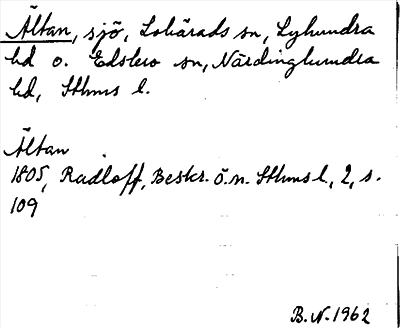 Ältan, sjö, Lohärads sn, Lyhundra
hd o. Edsbro sn, Närdinghundra
hd, Sthms l.
Ältan
1805, Radloff, Beskr. ö. n. Sthms l., 2, s.
109
B.N. 1962